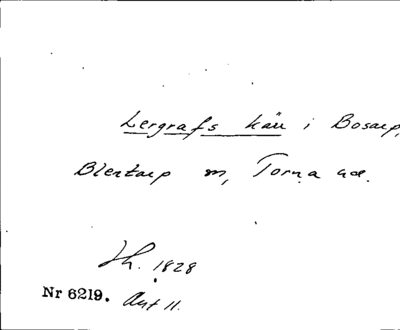 Lergrafs kärr i Bosarp,
Blentarp sn, Torna hd.
Jh. 1828
Nr 6219. Avt 11.